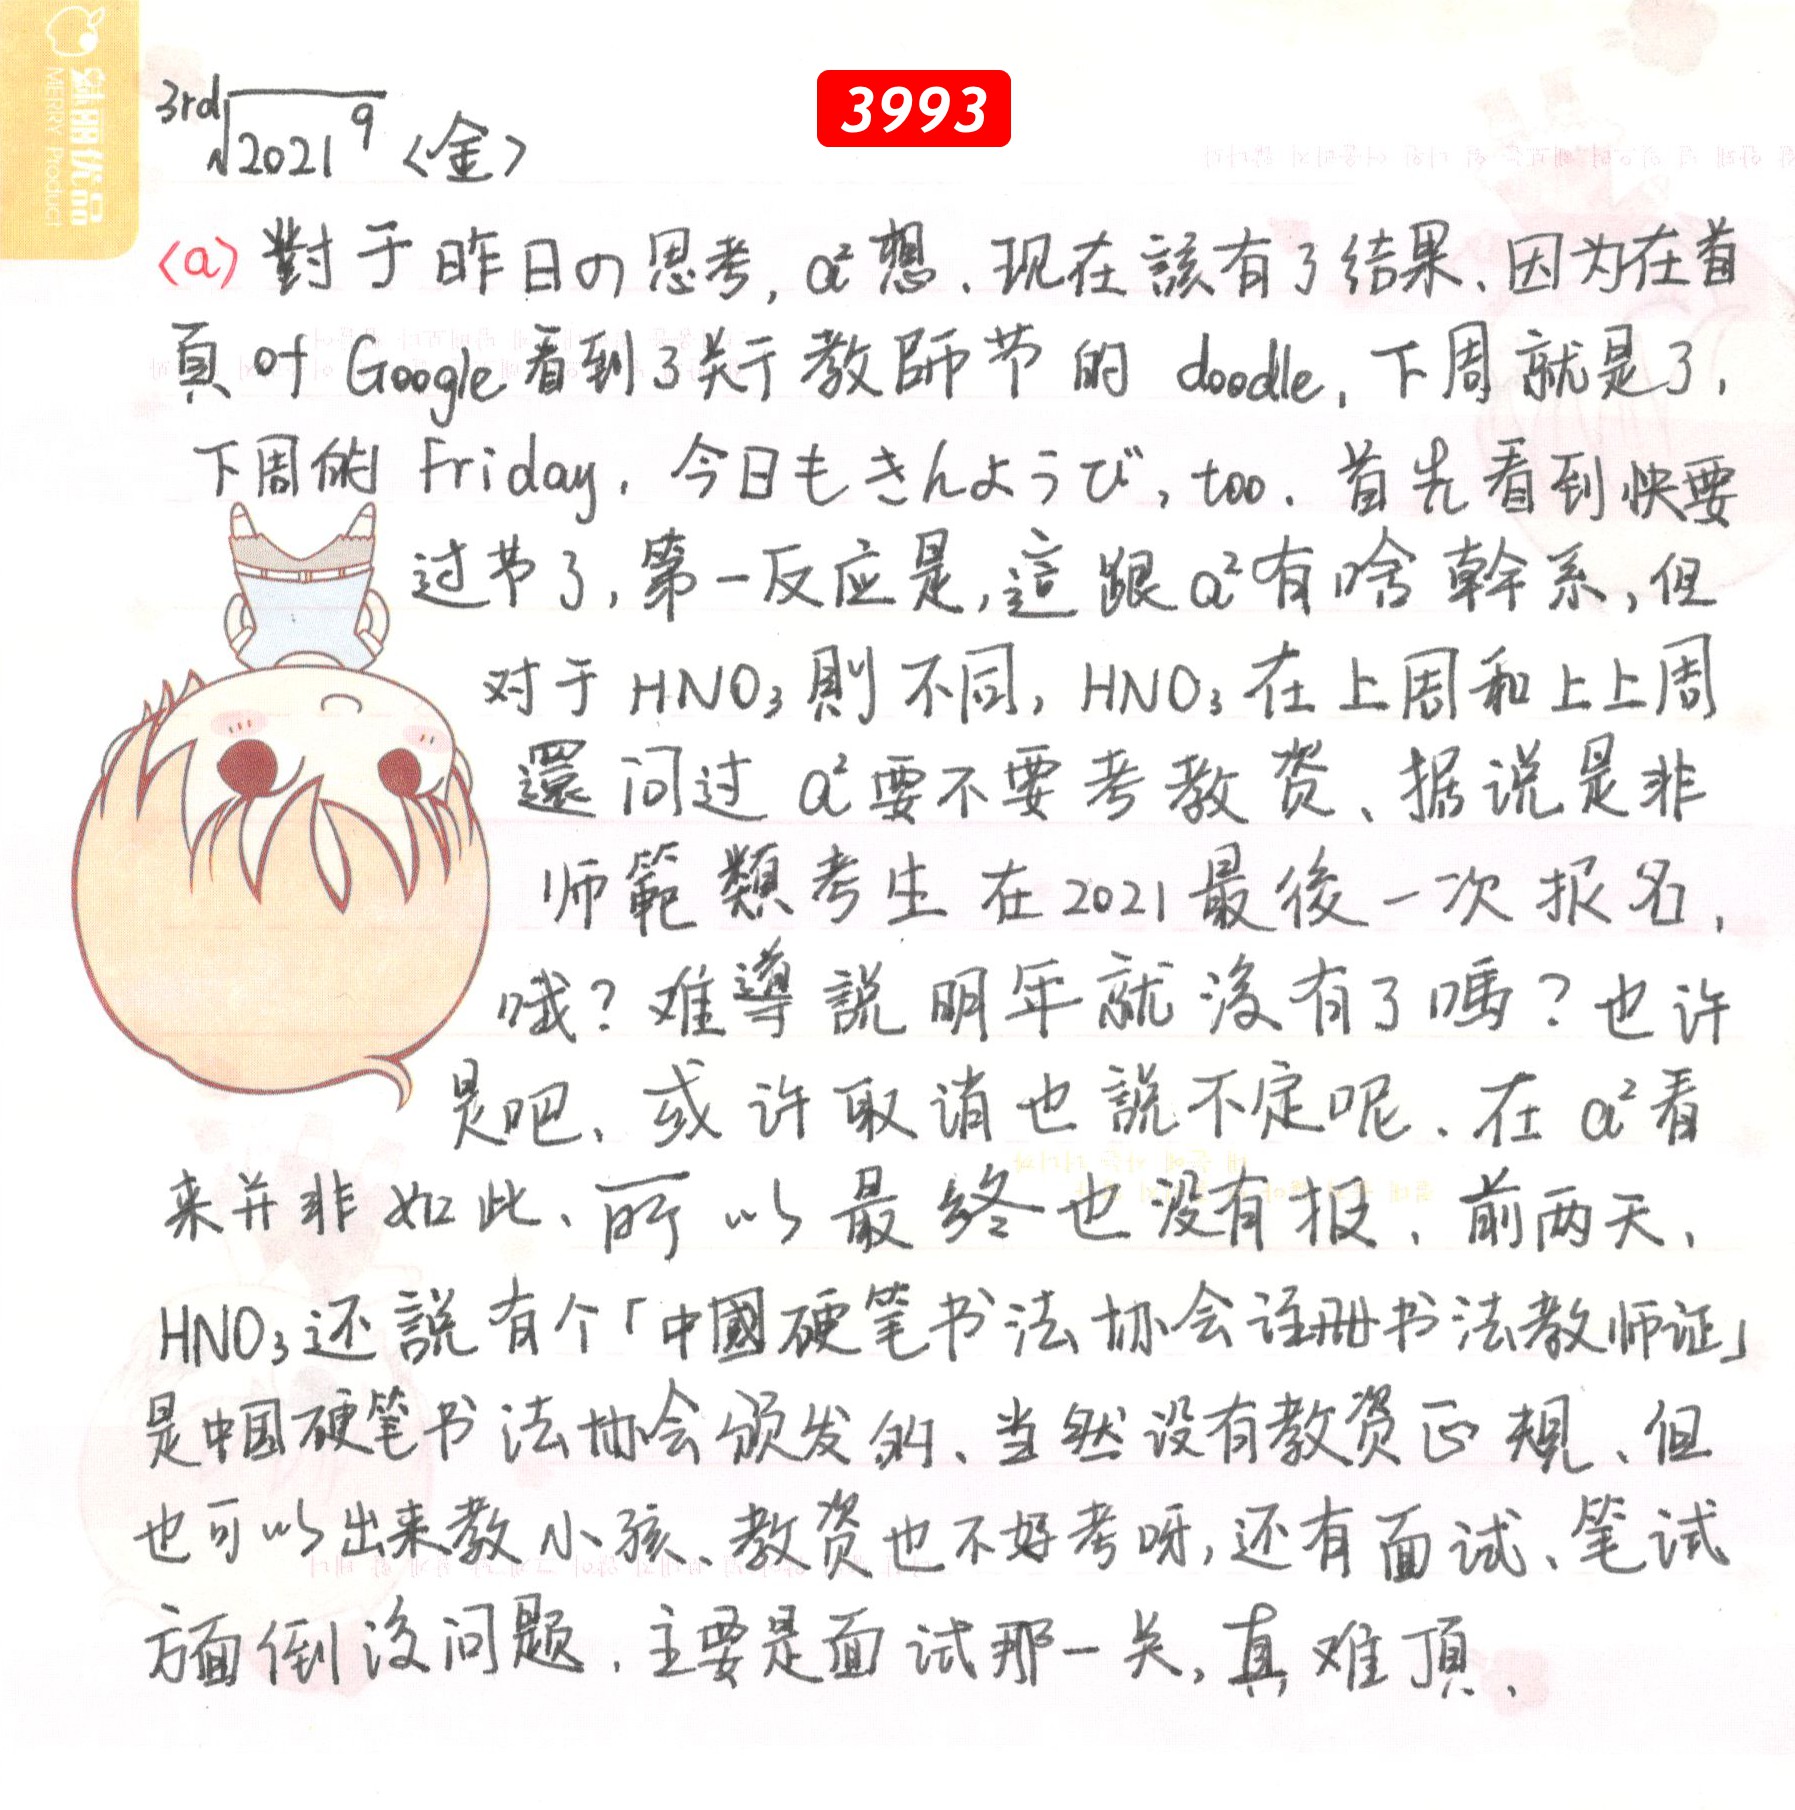 3993
3rd√2021⁹ <金>
<a> 對于昨日の思考, a²想、现在該有了结果、因为在首
頁 of Google 看到了关于教師节的 doodle, 下周就是了,
下周的 Friday, 今日もきんようび, too. 首先看到快要
过节了, 第一反应是, 這跟a²有啥幹系, 但
对于 HNO₃ 則不同, HNO₃ 在上周和上上周
還问过 a² 要不要考教资、据说是非
师範類考生在2021最後一次报名,
哦? 难導説明年就没有了嗎? 也许
是吧、或许取消也説不定呢、在 a² 看
来并非如此、所以最終也没有报、前两天、
HNO₃还説有个「中國硬笔书法协会注册书法教师证」
是中国硬笔书法协会颁发的、当然没有教资正规、但
也可以出来教小孩、教资也不好考呀, 还有面试、笔试
方面倒没问题, 主要是面试那一关, 真难頂、
MERRY Product